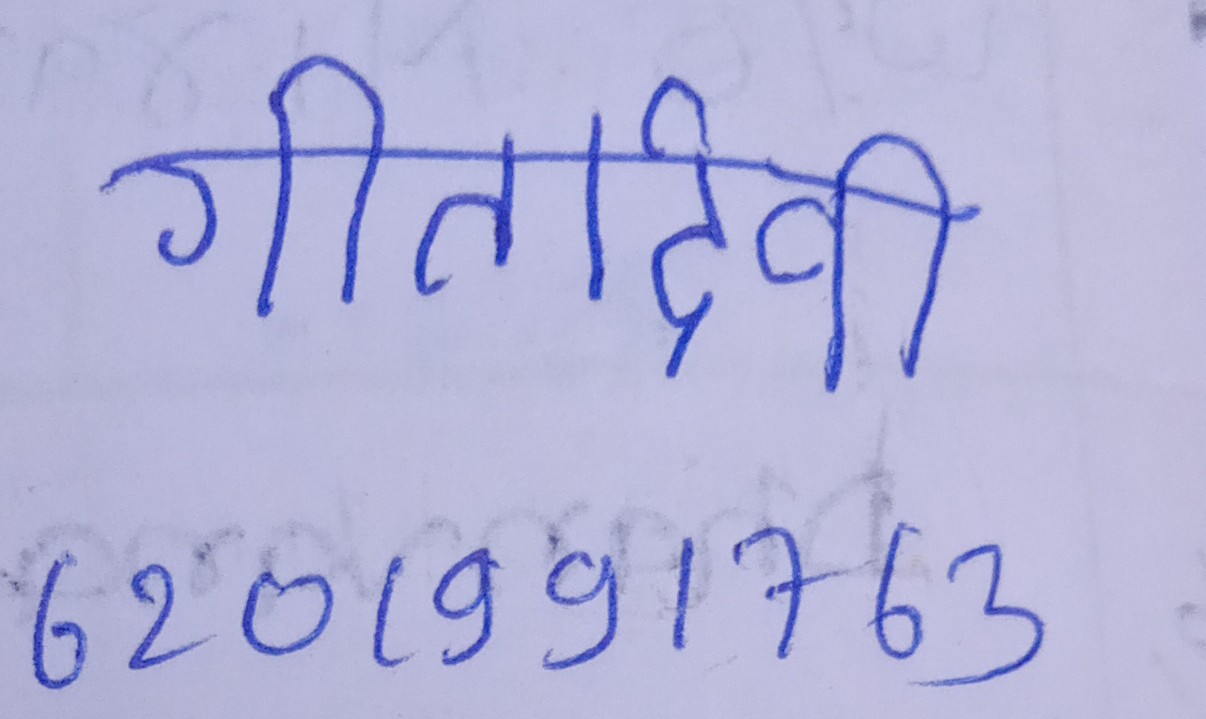 गीता देवी
6201991763